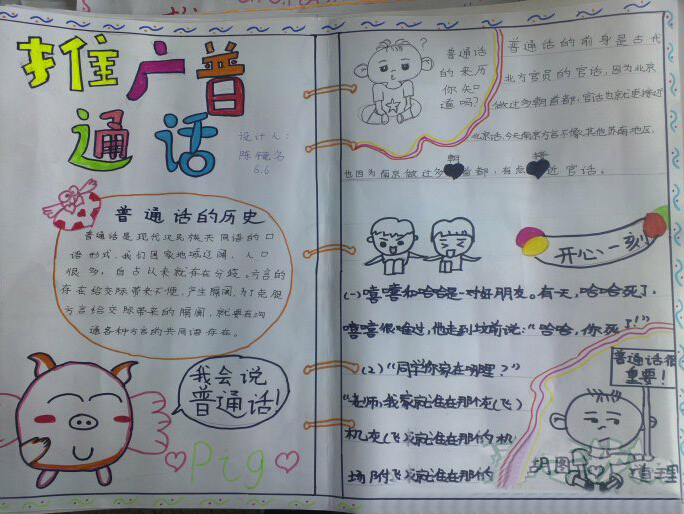 推广普
通话
设计人：
6.6
普通话的历史
普通话是现代汉民族共同语的口
语形式。我们国家地域辽阔，人口
很多，自古以来就存在分歧。方言的
存在给交际带来不便，产生隔阂，为了克服
方言给交际带来的隔阂，就要有沟
通各种方言的共同语存在。
我会说
普通话！
Pig
普通话
的来历
你知
道吗？
普通话的前身是古代
北方官员的官话，因为北京
做过多朝首都，官话也就更接近
北京话，今天南京方言不像其他苏南地区，
也因为南京做过多朝首都，有点接近官话。
开心一刻
(一)嘻嘻和哈哈是一对好朋友。有天，哈哈死了，
嘻嘻很难过，他走到坟前说："哈哈，你死了！"
(2)"同学你家在哪里？"
"老师，我家就谁在那个灰(飞)
机灰(飞)就谁在那的机
场附飞就谁在那的
普通话很
重要！
胡图图
道理